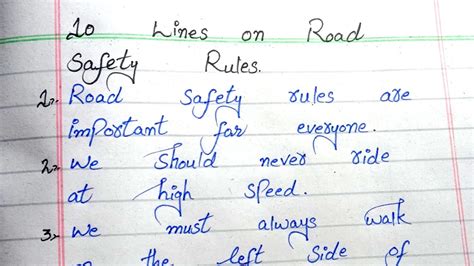 10 Lines on Road
Safety Rules.
1. Road Safety rules are
important for everyone.
2. We should never ride
at high speed.
3. We must always walk
the left side of